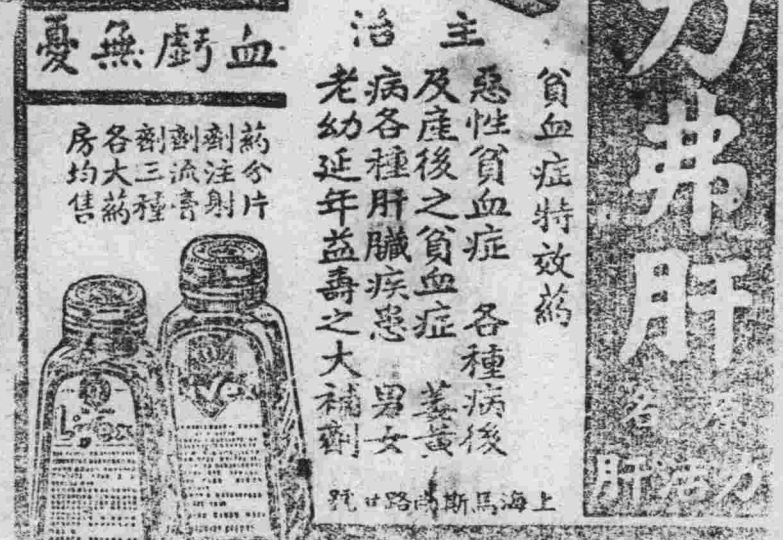 力弗肝
原名
力活肝
主治
貧血症特效葯
惡性貧血症 各種病後
及產後之貧血症 萎黃
病各種肝臟疾患 男女
老幼延年益壽之大補劑
上海馬斯南路廿號
血虧無憂
葯分片
劑注射
劑流膏
劑三種
各大葯
房均售